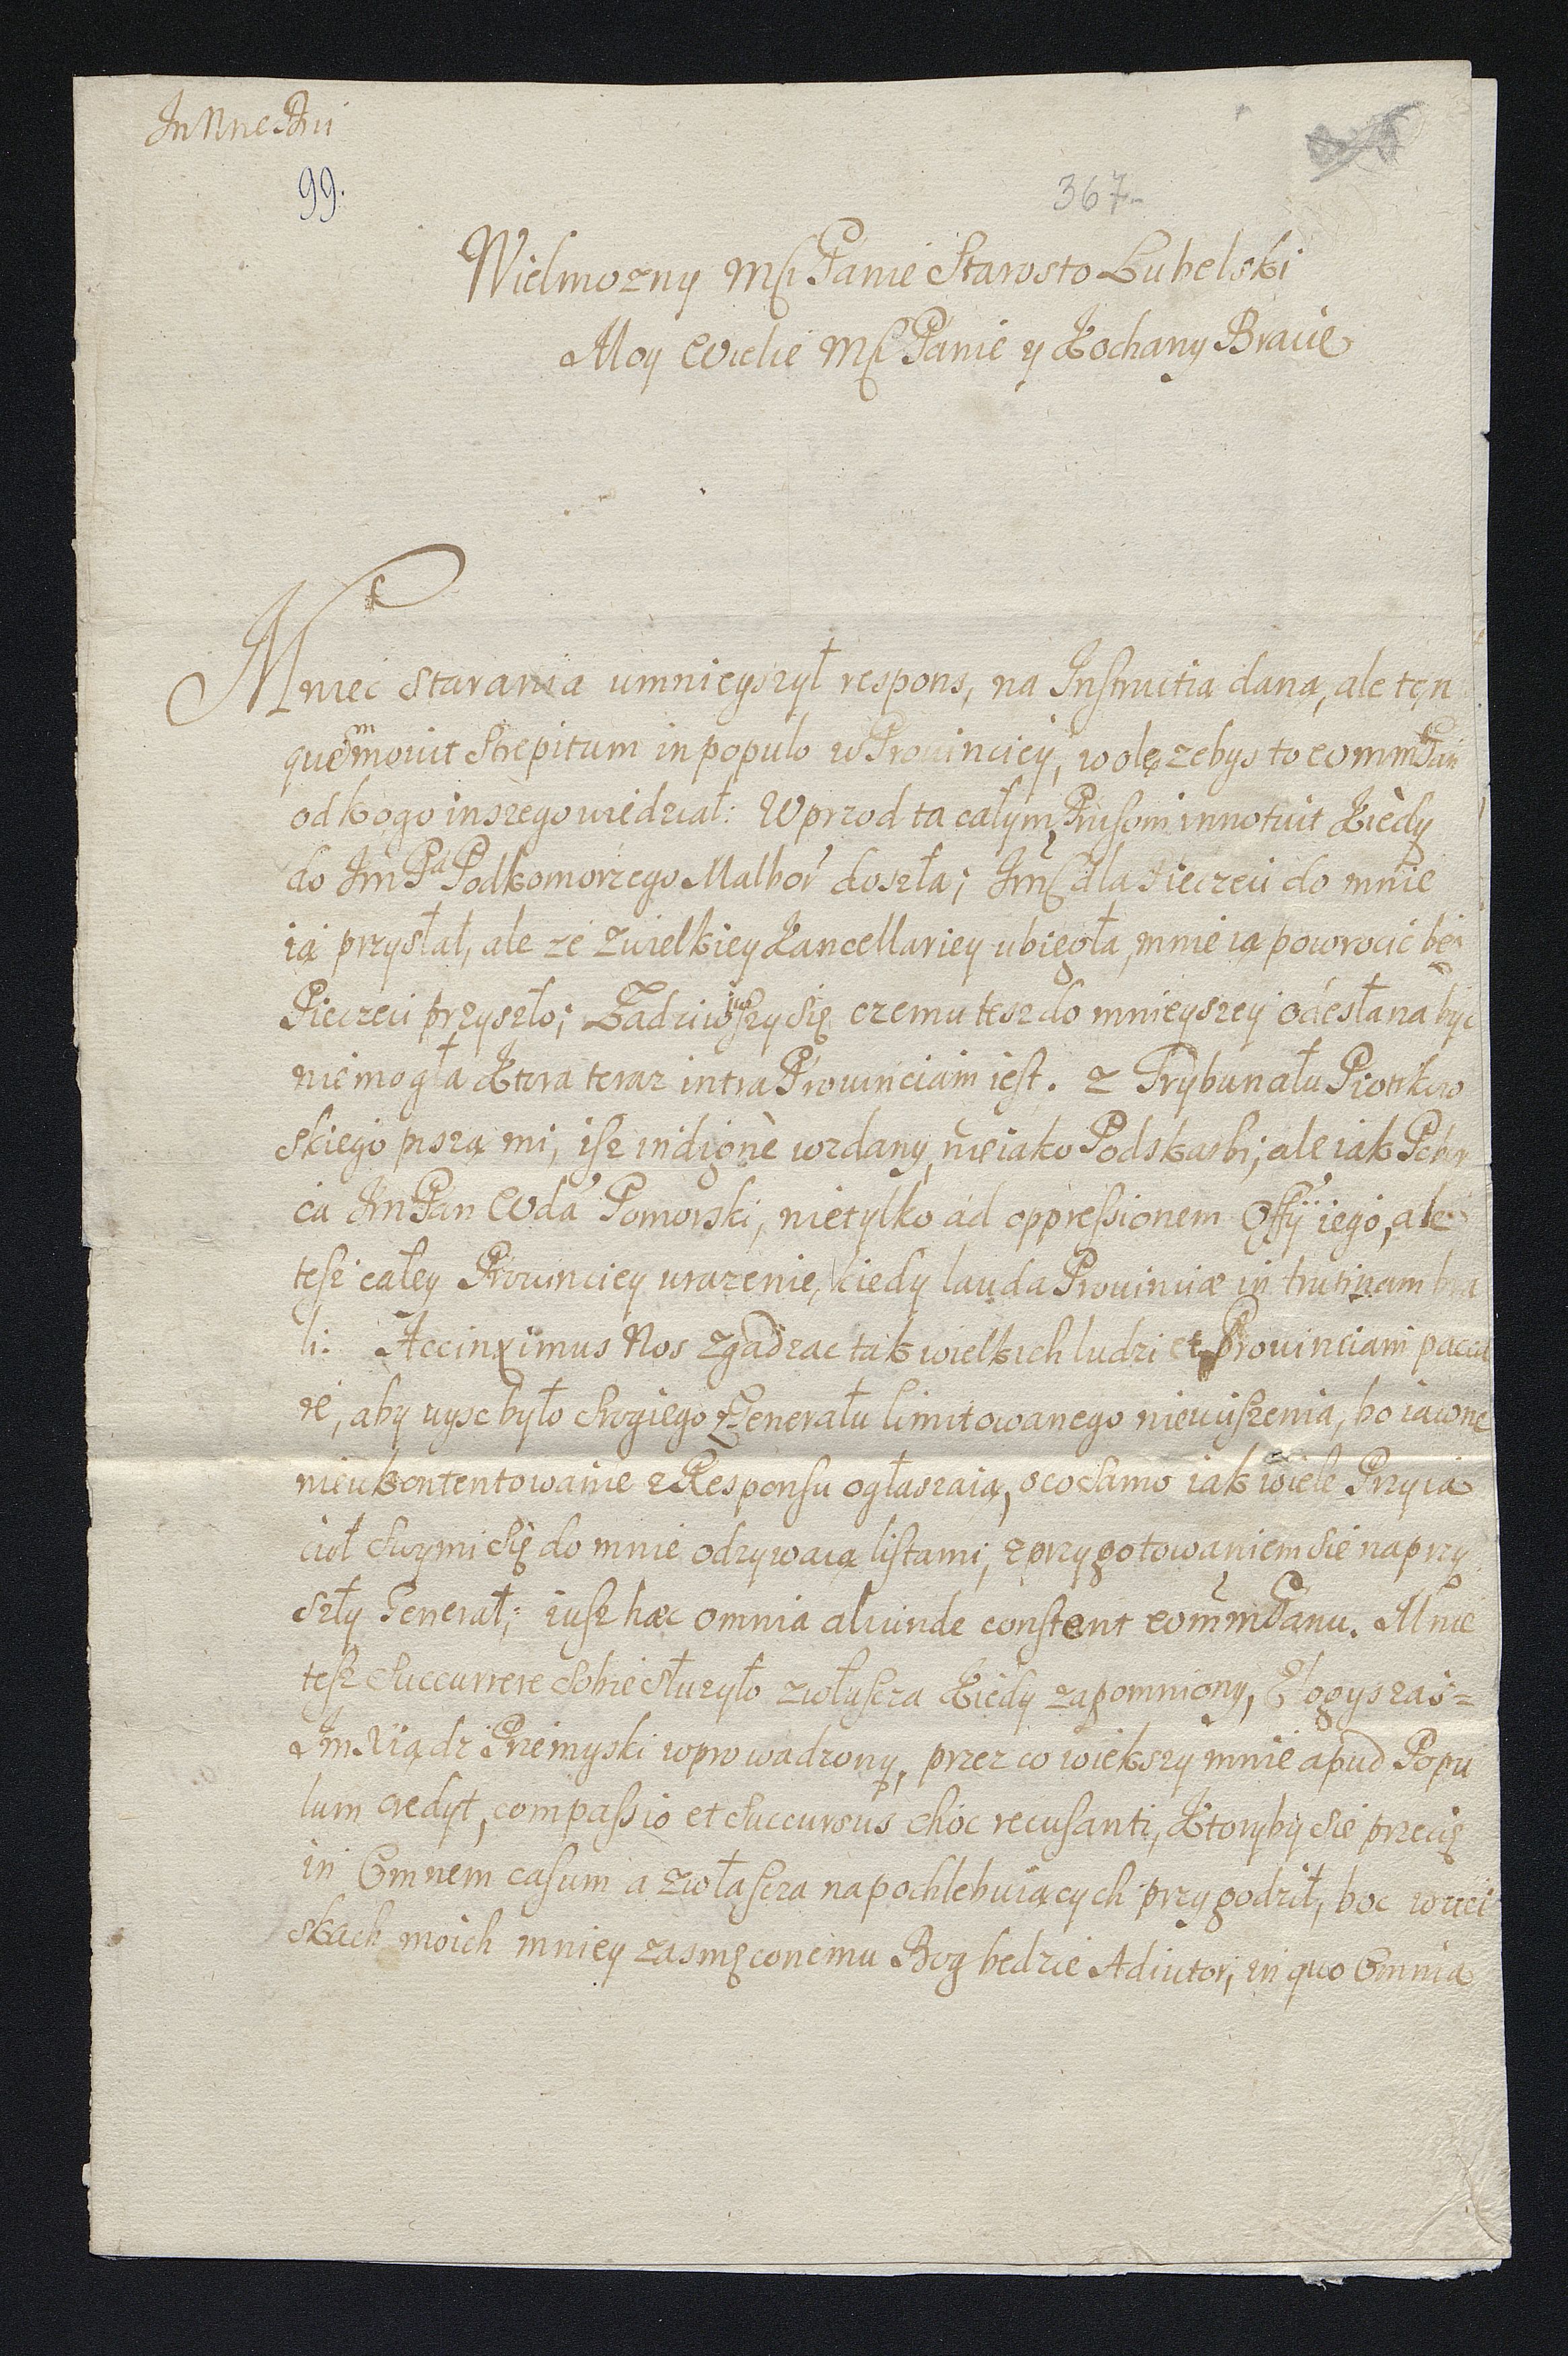 In Nne Dni
99.
367
Wielmozny Mści Panie Starosto Lubelski
Moy Wielie Mści Panie y Kochany Bracie
Mniec starania umnieyszył respons, na Instructia dana, ale ten
quem movit strepitum in populo w Prowinciey, wolę zebys to WMMPan
od kogo inszego wiedział: Wprzod ta całym Prusom innotuit kiedy
do Jm Pa Podkomorzego Malbor doszła; Jmć dla Pieczeci do mnie
ią przysłał, ale ze z wielkiey Kancellariey ubiegła, mnie ią powrocic bez
Pieczeci przyszło; Zadziwiwszy się czemu tesz do mnieyszey odesłana byc
nie mogła Ktora teraz intra Provinciam iest. z Trybunału Piotrkow
skiego piszą mi, isz indigne wzdany, nie iako Podskarbi; ale iak Pobor
ca Jm Pan Wda Pomorski, nie tylko ad oppressionem Offy iego, ale
tesz całey Prowinciey urazenie, kiedy lauda Provinciæ in trutinam bra
li. Accinximus Nos zgadzac tak wielkich ludzi et Provinciam pacca
re, aby uysc było srogiego Generału limitowanego niewuszenia, bo iawne
nieukontentowanie z Responsu ogłaszaią, oco samo iak wiele Przyia
cioł swymi się do mnie odzywaią listami, z przygotowaniem sie na przy
szły Generał; iusz hæc omnia aliunde constant WMMPanu. Mnie
tesz succurrere sobie słuzyło zwłascza kiedy zapomniony,
Jm Xiądz Przemyski wprowadzony, przez co wiekszy mnie apud Popu
lum credyt, compassio et succursus choc recusanti, Ktoryby sie przecię
in Omnem casum a zwłascza na pochlebuiących przygodził, boc w uci
skach moich mniey zasmęconemu Bog bedzie Adiutor, in quo Omnia